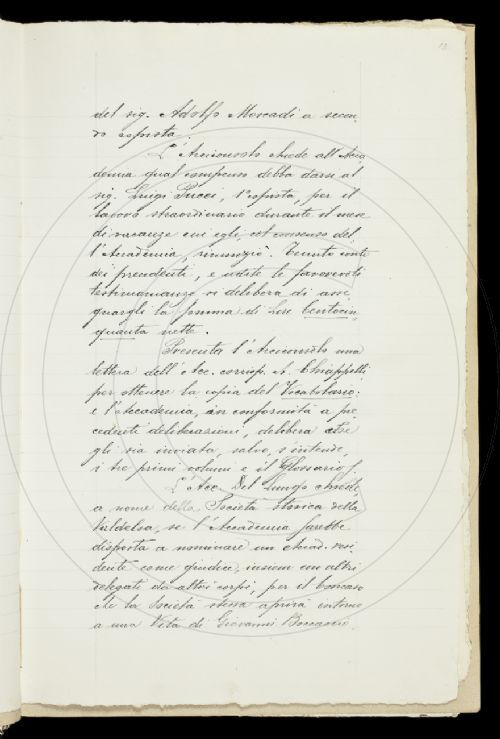 del sig. Adolfo Mercadi a secon-
do coposta.
L'Arciconsolo chiede all'Acca
demia qual compenso debba darsi al
sig. Luigi Pucci, 1° coposta, per il
lavoro straordinario durante il mese
di vacanze cui egli, col consenso del-
l'Accademia, rinunziò. Tenuto conto
dei precedenti, e udite le favorevoli
testimonianze si delibera di asse-
gnargli la somma di Lire Centocin-
quanta nette.
Presenta l'Arciconsolo una
lettera dell'Acc. corrisp. A. Chiappelli
per ottenere la copia del Vocabolario:
e l'Accademia, in conformità a pre
cedenti deliberazioni, delibera che
gli sia inviata, salvo, s'intende,
i tre primi volumi e il Glossario
L'Acc. Del Lungo chiede,
a nome della Società storica della
Valdelsa, se l'Accademia sarebbe
disposta a nominare un Accad. resi-
dente come giudice, insieme con altri
delegati da altri corpi, per il Concorso
che la Società stessa aprirà intorno
a una Vita di Giovanni Boccaccio.